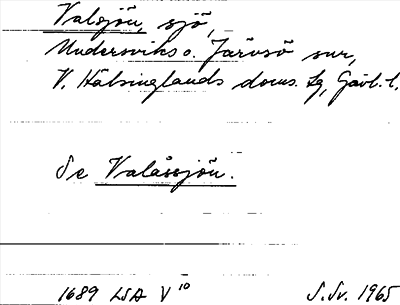 Valsjön, sjö,
Undersviks o. Järvsö snr,
V. Hälsinglands doms. tg, Gävl. l.
Se Valåssjön.
1689 LSA V 10
S. Sv. 1965